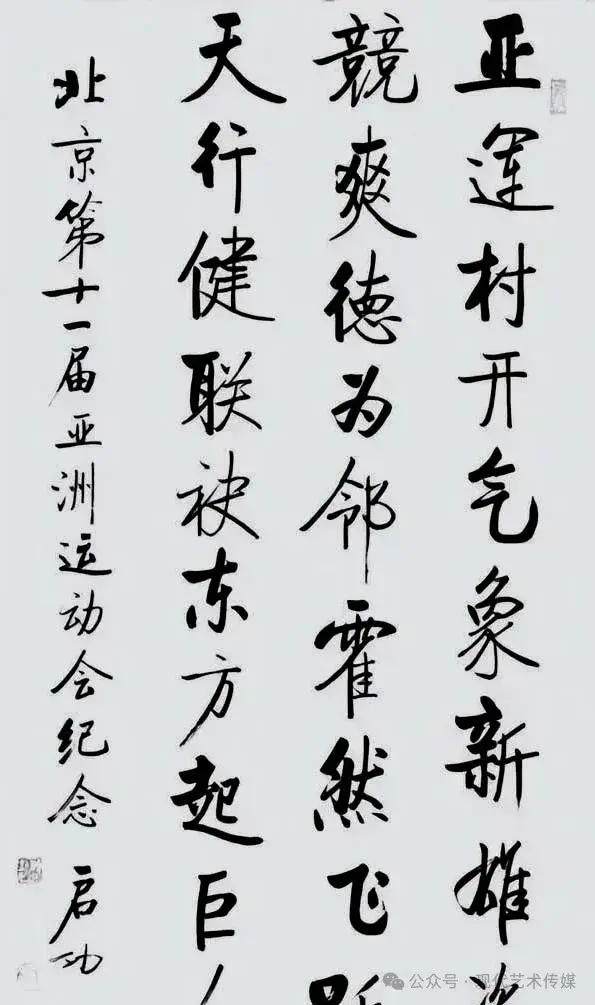 亚運村开气象新雄
競爽德为邻霍然飞
天行健联袂东方起巨
北京第十一届亚洲运动会纪念 启功
公众号·现代艺术传媒